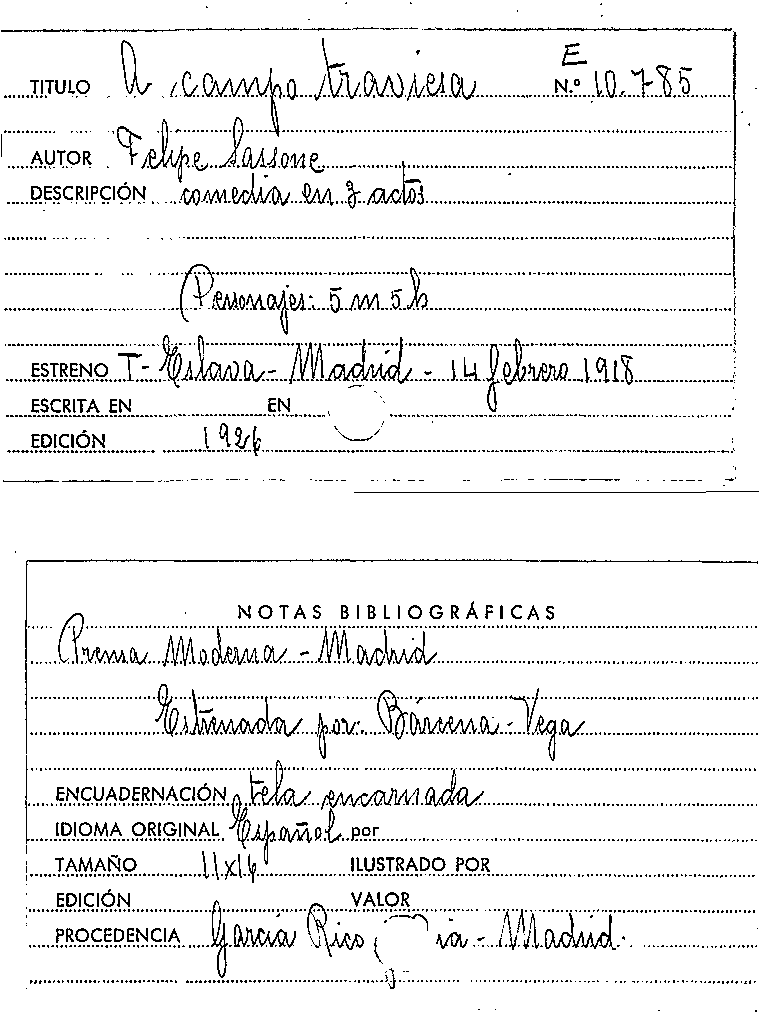 E
TITULO A campo traviesa N.º 10.785
AUTOR Felipe Sassone
DESCRIPCIÓN comedia en 3 actos
Personajes: 5 m 5 h
ESTRENO T- Eslava - Madrid - 14 febrero 1918
ESCRITA EN EN
EDICIÓN 1926
NOTAS BIBLIOGRÁFICAS
Prensa Moderna - Madrid
Estrenada por: Bárcena - Vega
ENCUADERNACIÓN tela encarnada
IDIOMA ORIGINAL Español por
TAMAÑO 11x16 ILUSTRADO POR
EDICIÓN VALOR
PROCEDENCIA García Rico - Madrid.